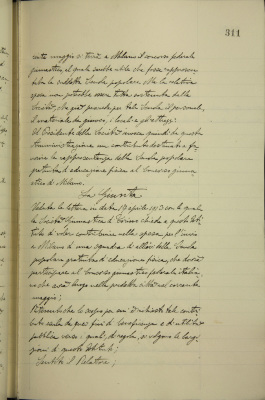 311
rente maggio si terrà a Milano il concorso federale
ginnastico al quale sarebbe utile che fosse rappresen-
tata la suddetta Scuola popolare. Ma la relativa
spesa non potrebbe essere tutta sostenuta dalla
Società, che già provvede per tale Scuola il personale,
il materiale
Il Presidente della Società invoca quindi da questa
Amministrazione un contributo destinato a fa-
vorire la rappresentanza della Scuola popolare
gratuita di educazione fisica al Concorso ginna-
stico di Milano.
La Giunta
Veduta la lettera in data 17 aprile 1913 con la quale
la Società Ginnastica di Torino chiede a questo Isti-
tuto di voler contribuire nella spesa per l'invio
a Milano di una squadra di allievi della Scuola
popolare gratuita di educazione fisica, che dovrà
partecipare al Concorso ginnastico federale italia-
no che avrà luogo nella predetta città nel corrente
maggio;
Ritenuto che lo scopo per cui è richiesto tale contri-
buto esula da quei fini di beneficenza e di utilità
pubblica verso i quali, di regola, si volgono le largi-
zioni di questo Istituto;
Sentito il Relatore;